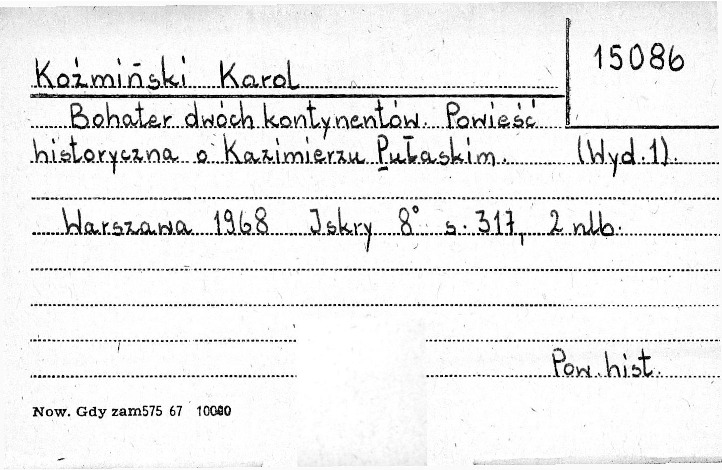 15086
Koźmiński Karol
Bohater dwóch kontynentów. Powieść
historyczna o Kazimierzu Pułaskim. (Wyd. 1).
Warszawa 1968 Iskry 8° s. 317, 2 nlb.
Pow. hist.
Now. Gdy zam575 67 10000